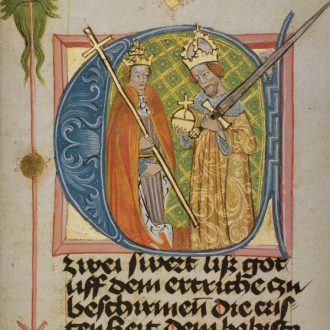 zwei swert liß got
uff dem ertriche zu
beschirmen die cris
tenheit dem